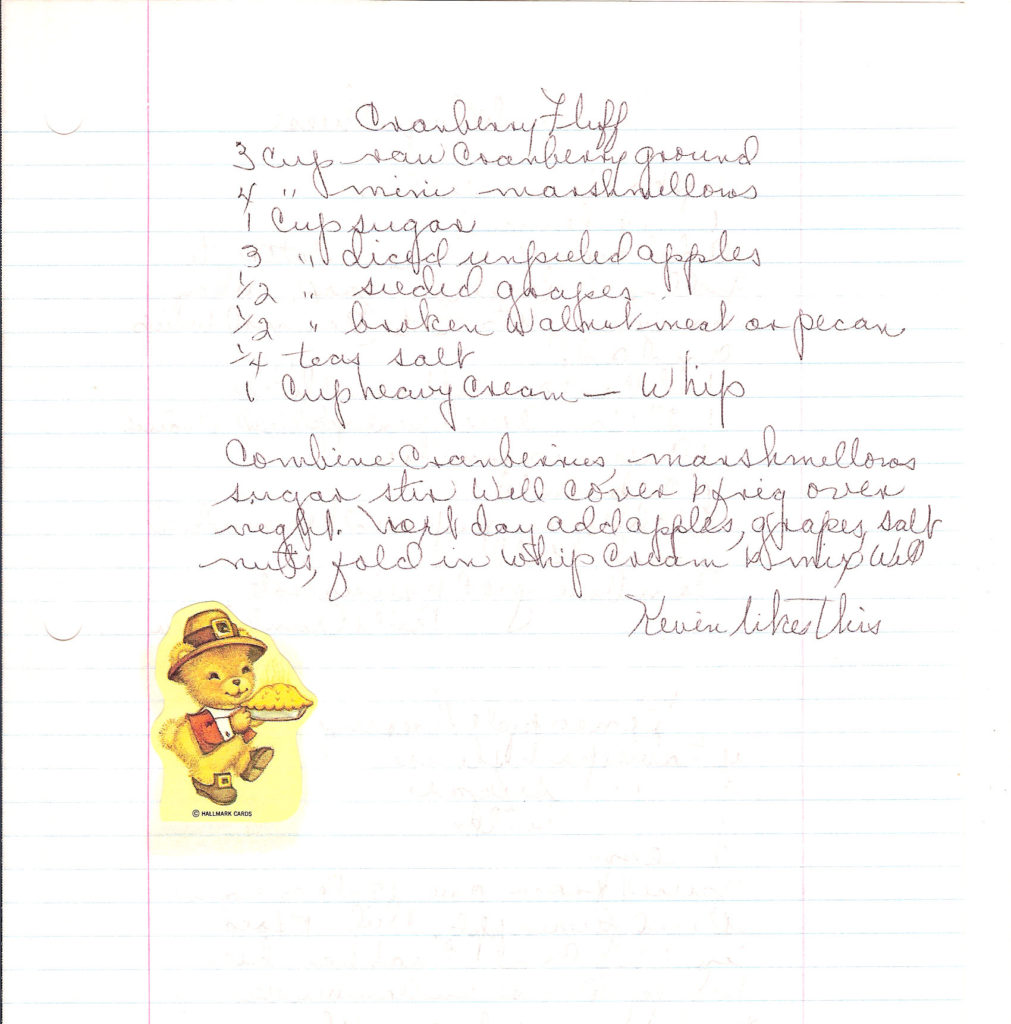 Cranberry Fluff
3 Cup raw Cranberry ground
4 " mini marshmellows
1 Cup sugar
3 " diced unpeeled apples
1/2 " seeded grapes
1/2 " broken Walnut meat or pecan
1/4 teas salt
1 Cup heavy Cream — Whip
Combine Cranberries, marshmellows
sugar stir Well cover refrig over
night. Next day add apples, grapes, salt
nuts, fold in whip Cream mix Well
Kevin likes This
© HALLMARK CARDS